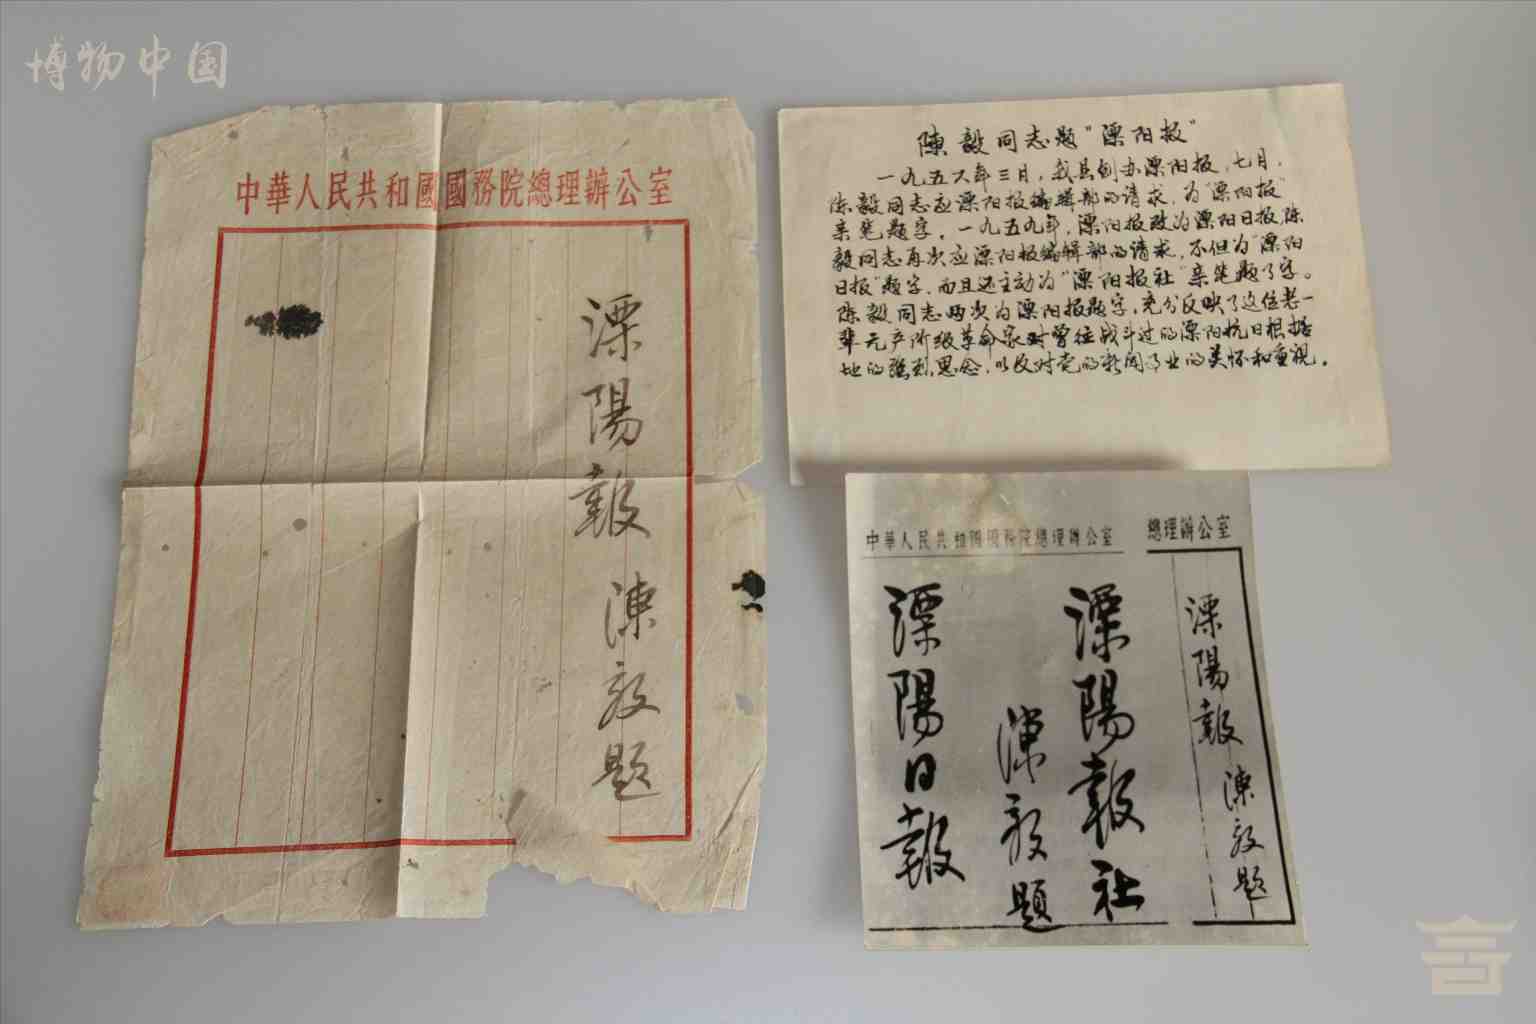 博物中国
中華人民共和國國務院總理辦公室
溧陽報
陳毅題
陈毅同志题"溧阳报"
一九五六年三月，我县创办溧阳报，七月，
陈毅同志应溧阳报编辑部的请求，为"溧阳报"
亲笔题字。一九五九年，溧阳报改为溧阳日报，陈
毅同志再次应溧阳报编辑部的请求，不但为"溧阳
日报"题字，而且还主动为"溧阳报社"亲笔题了字。
陈毅同志两次为溧阳报题字，充分反映了这位老一
辈无产阶级革命家对曾经战斗过的溧阳抗日根据
地的强烈思念，以及对党的新闻事业的关怀和重视。
中華人民共和國國務院總理辦公室
總理辦公室
溧陽報
陳毅題
溧陽報社
陳毅題
溧陽日報